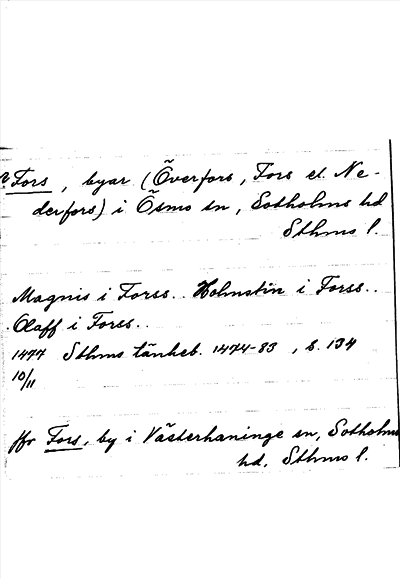 ? Fors, byar (Överfors, Fors el. Ne-
derfors) i Ösmo sn, Sotholms hd
Sthms l.
Magnis i Forss.. Holmstin i Forss..
.Olaff i Forss..
1477 Sthms tänkeb. 1474-83, s. 134
10/11
jfr Fors, by i Västerhaninge sn, Sotholms
hd, Sthms l.